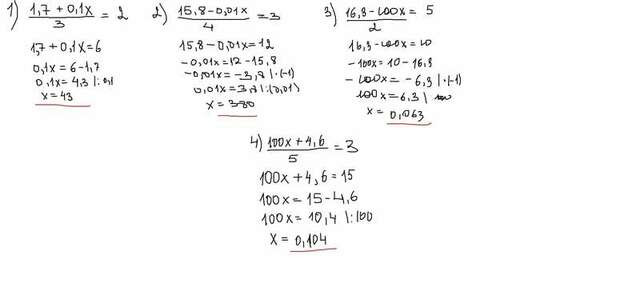 1) (1,7 + 0,1x)/3 = 2
1,7 + 0,1x = 6
0,1x = 6 - 1,7
0,1x = 4,3 |: 0,1
x = 43
2) (15,8 - 0,01x)/4 = 3
15,8 - 0,01x = 12
-0,01x = 12 - 15,8
-0,01x = -3,8 | ·(-1)
0,01x = 3,8 |:(0,01)
x = 380
3) (16,3 - 100x)/2 = 5
16,3 - 100x = 10
-100x = 10 - 16,3
-100x = -6,3 | ·(-1)
100x = 6,3 | 100
x = 0,063
4) (100x + 4,6)/5 = 3
100x + 4,6 = 15
100x = 15 - 4,6
100x = 10,4 |: 100
x = 0,104